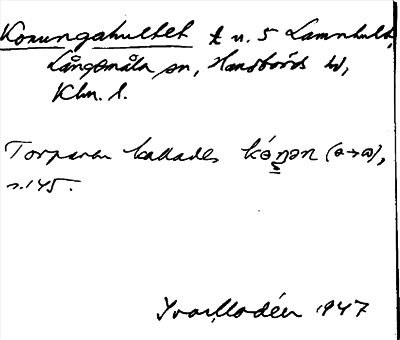 Konungahultet t u. 5 Lamnhult,
Långemåla sn, Handbörds hd,
Klm. l.
Torparen kallades kóŋən (ə→ω),
s. 145.
Ivar Modéer 1947